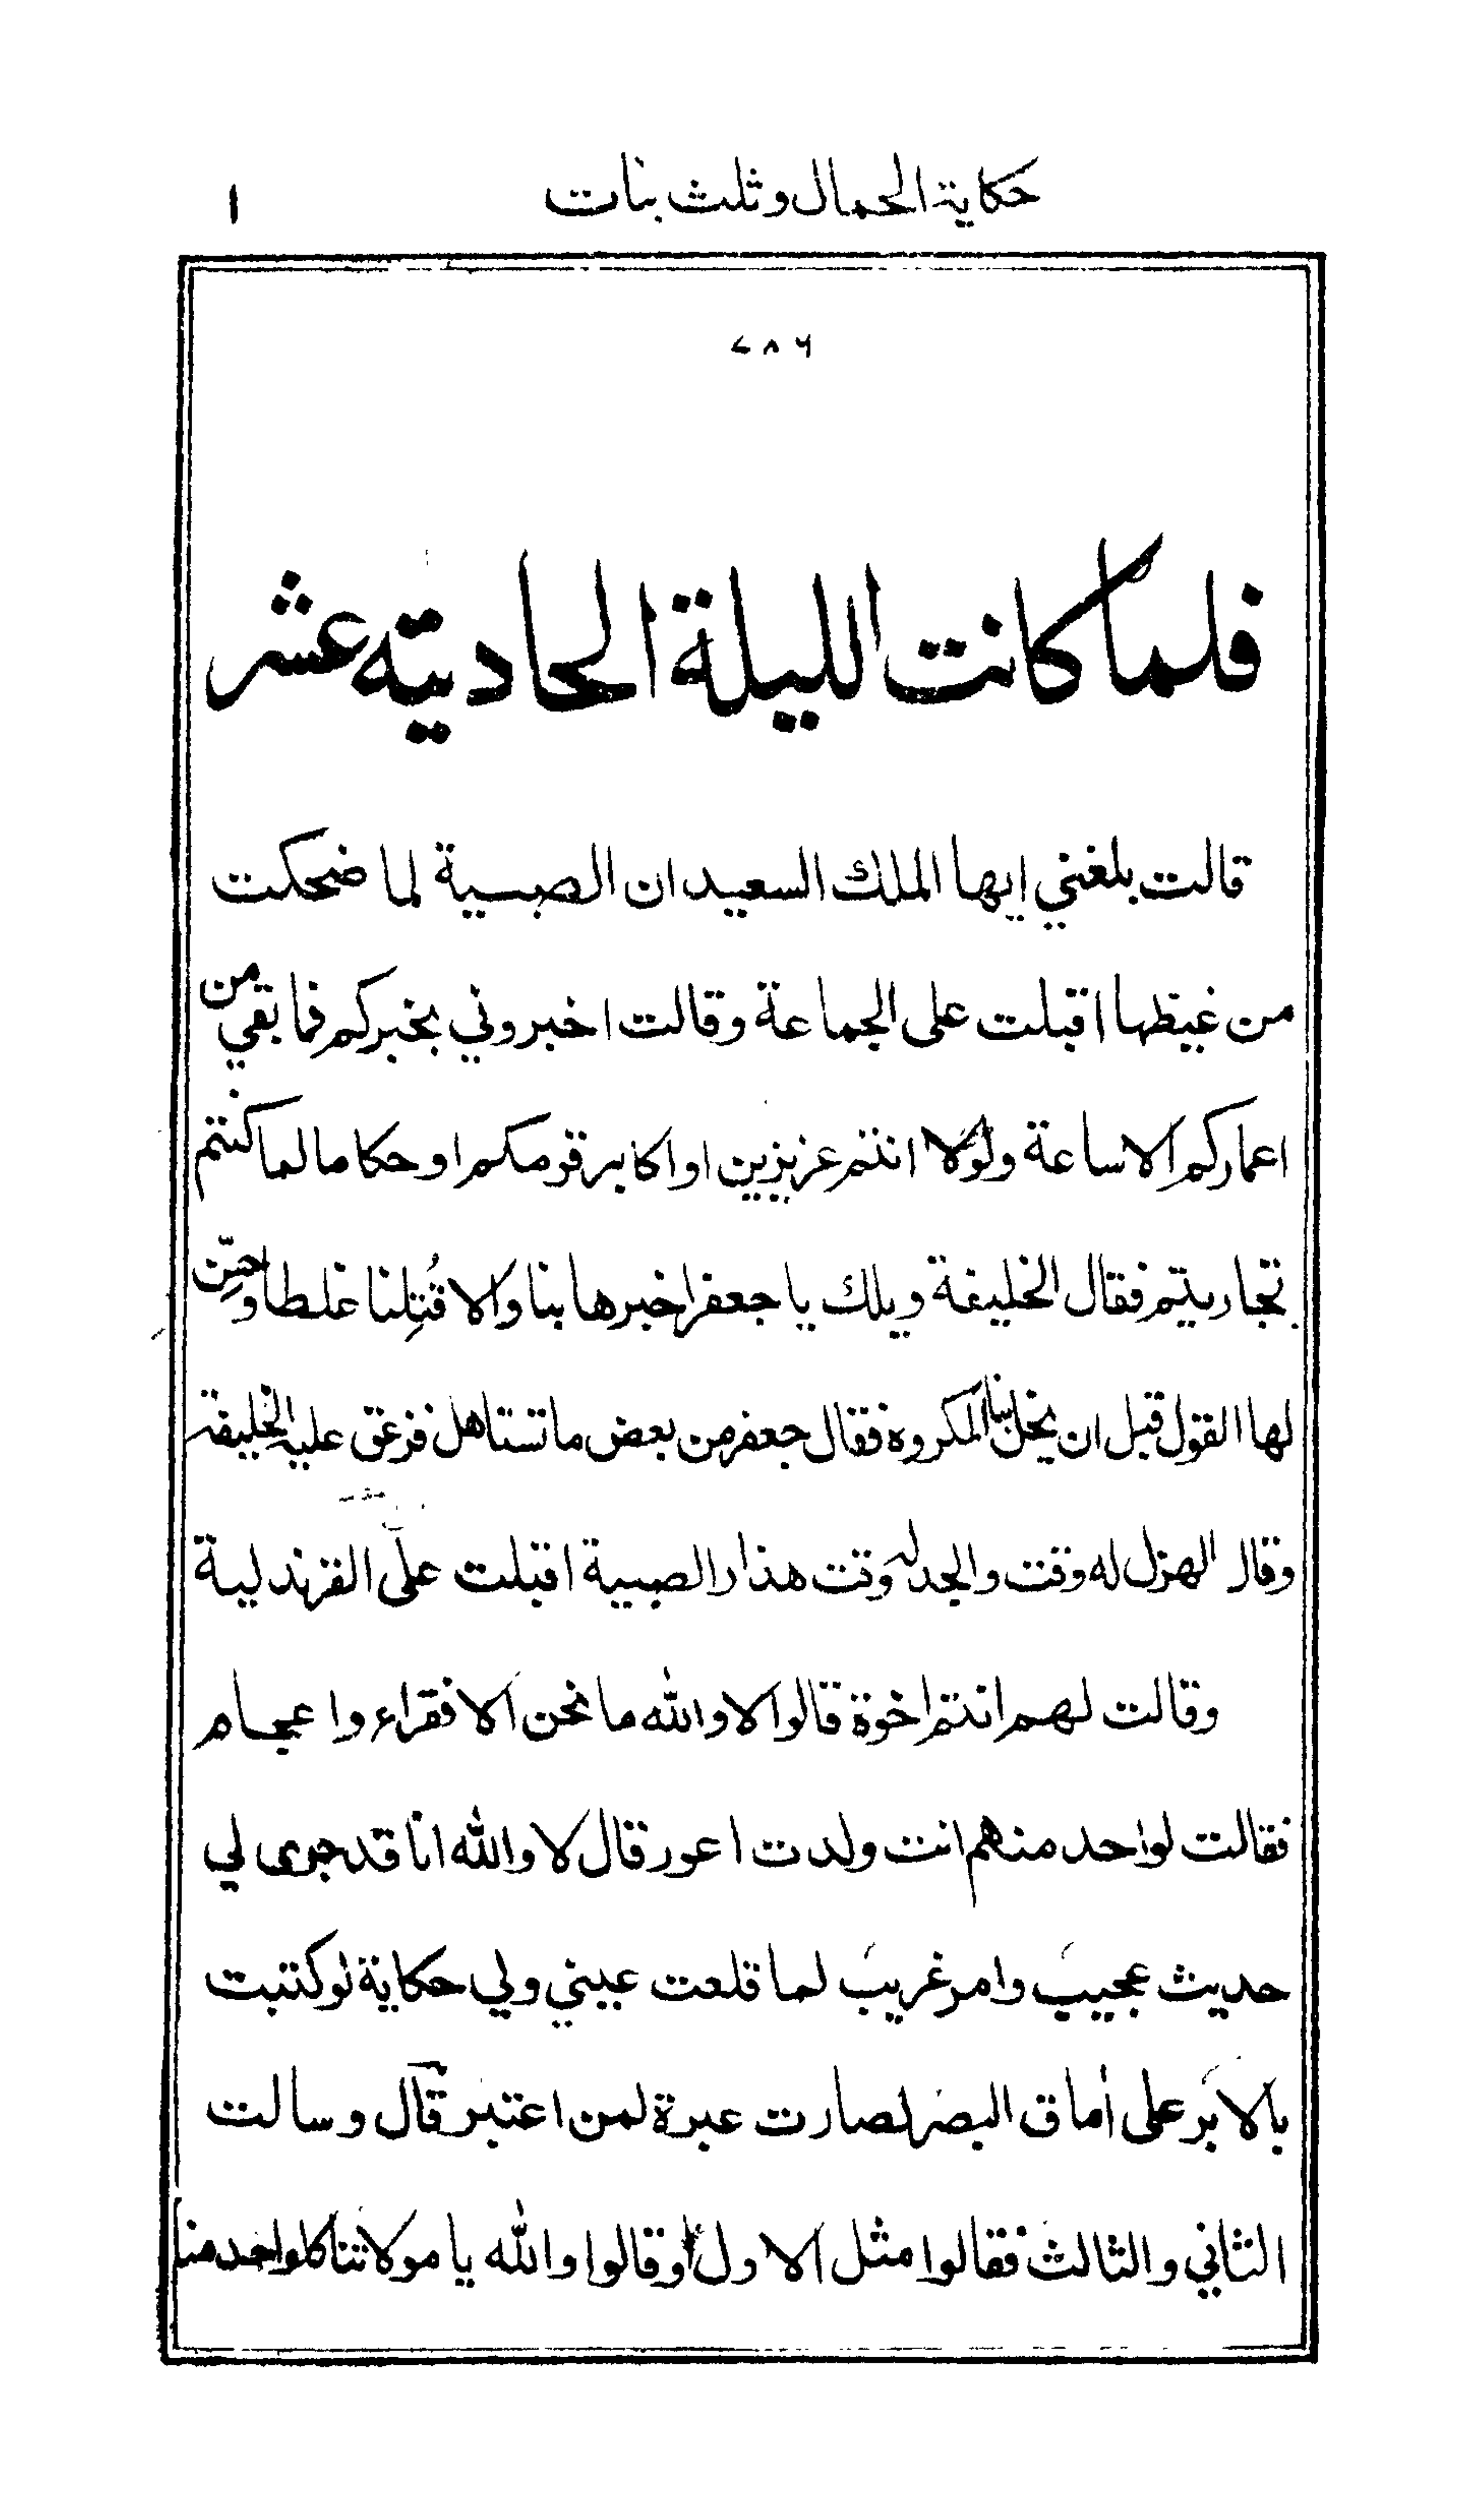 حكاية الحمال وثلث بنات ١
٧٨٦
فلما كانت الليلة الحاديّة عشر
قالت بلغني ايها الملك السعيد ان الصبية لما ضحكت
من غيظها اقبلت على الجماعة وقالت اخبروني بخبركم فما بقي من
اعماركم الا ساعة ولولا انتم عزيزين او اكابر قومكم او حكاما لما كنتم
تجاريتم فقال الخليفة ويلك يا جعفر اخبرها بنا والا قُتِلنا غلطا وحسِّن
لها القول قبل ان يحل بنا المكروه فقال جعفر من بعض ما تستاهل فزعق عليه الخليفة
وقال الهزل له وقت والجد له وقت هذا والصبية اقبلت على القرندلية
وقالت لهم انتم اخوة قالوا لا والله ما نحن الا فقراء واعجام
فقالت لواحد منهم انت ولدت اعور قال لا والله انا قد جرى لي
حديث عجيبَ وامر غريبَ لما قلعت عيني ولي حكاية لو كتبت
بالابر على اماق البصر لصارت عبرة لمن اعتبر قال وسالت
الثاني والثالث فقالوا مثل الاول وقالوا والله يا مولاتنا كلواحد منا